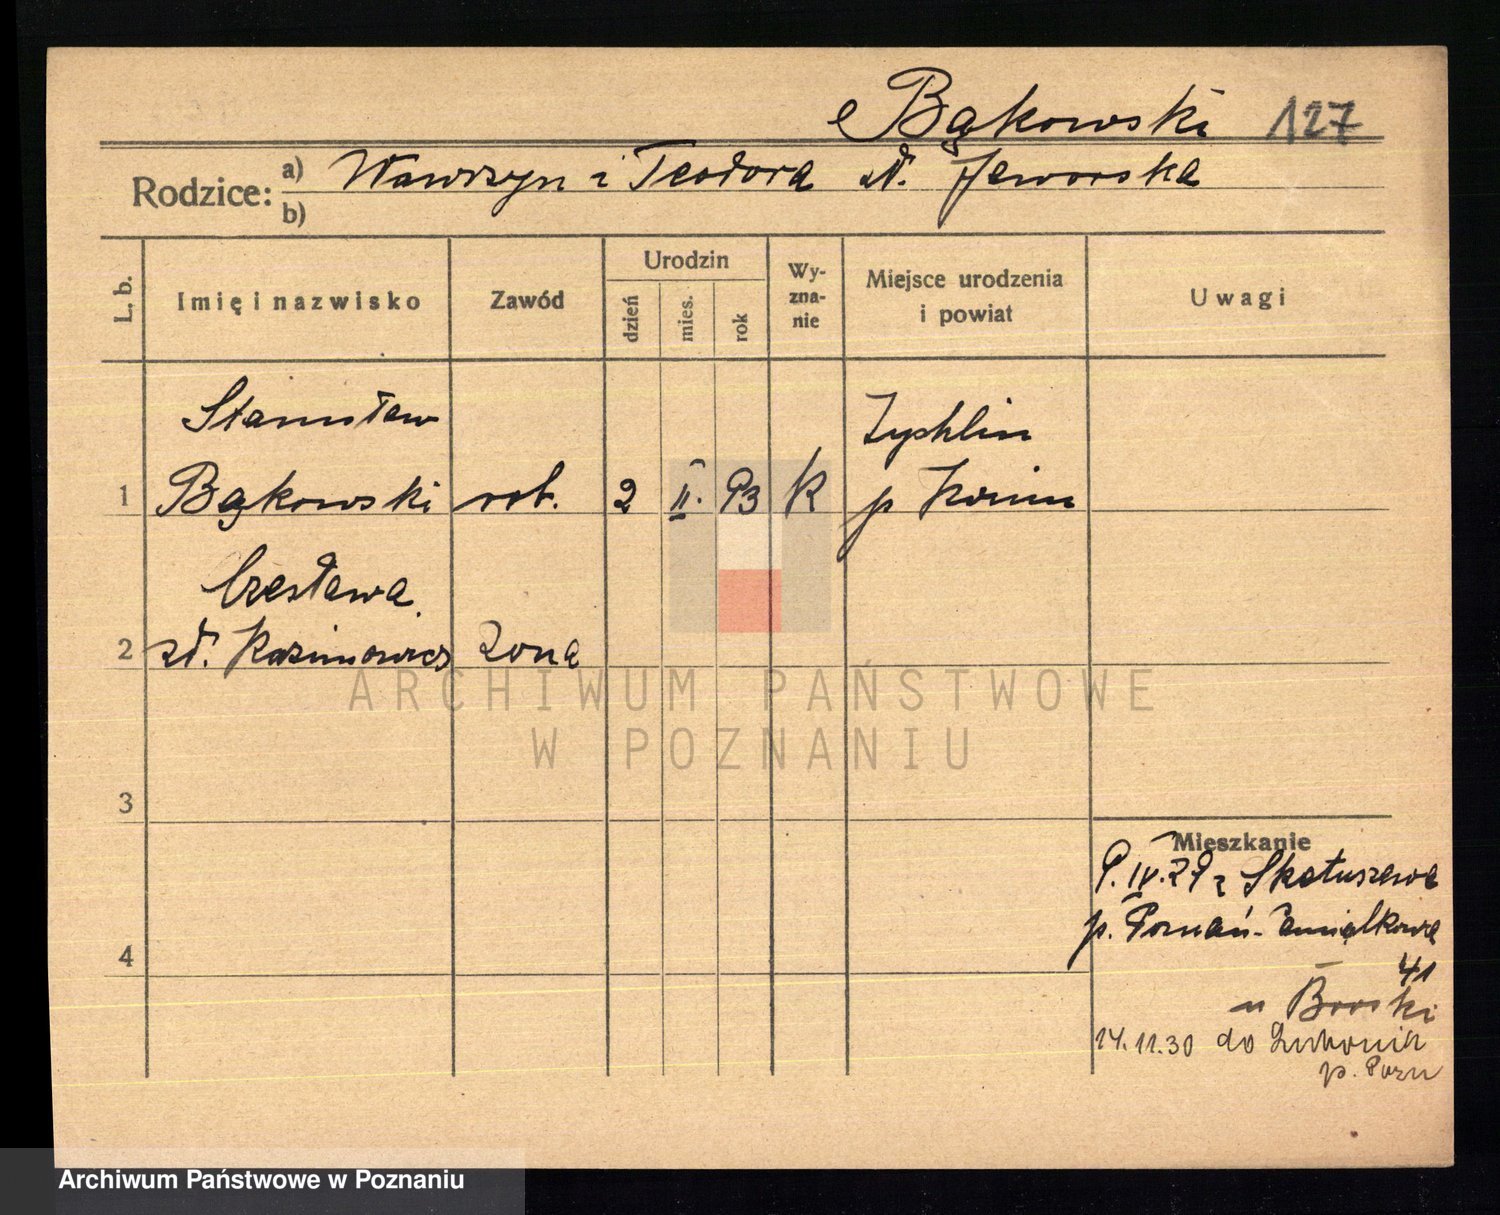 Bąkowski 127
Rodzice: a) Wawrzyn i Teodora zd. Jaworska
b)
L. b. Imię i nazwisko Zawód Urodzin dzień mies. rok Wyznanie Miejsce urodzenia i powiat Uwagi
Stanisław Żychlin
1 Bąkowski rob. 2 II. 93 K p Konin
Czesława
2 zd. Kazimowicz żona
ARCHIWUM PAŃSTWOWE
W POZNANIU
3
Mieszkanie
9. IV. 29 z Skałuszewa
p. Poznań
4
41
u Borski
14.11.30 do Lubonia
p. Pozn
Archiwum Państwowe w Poznaniu